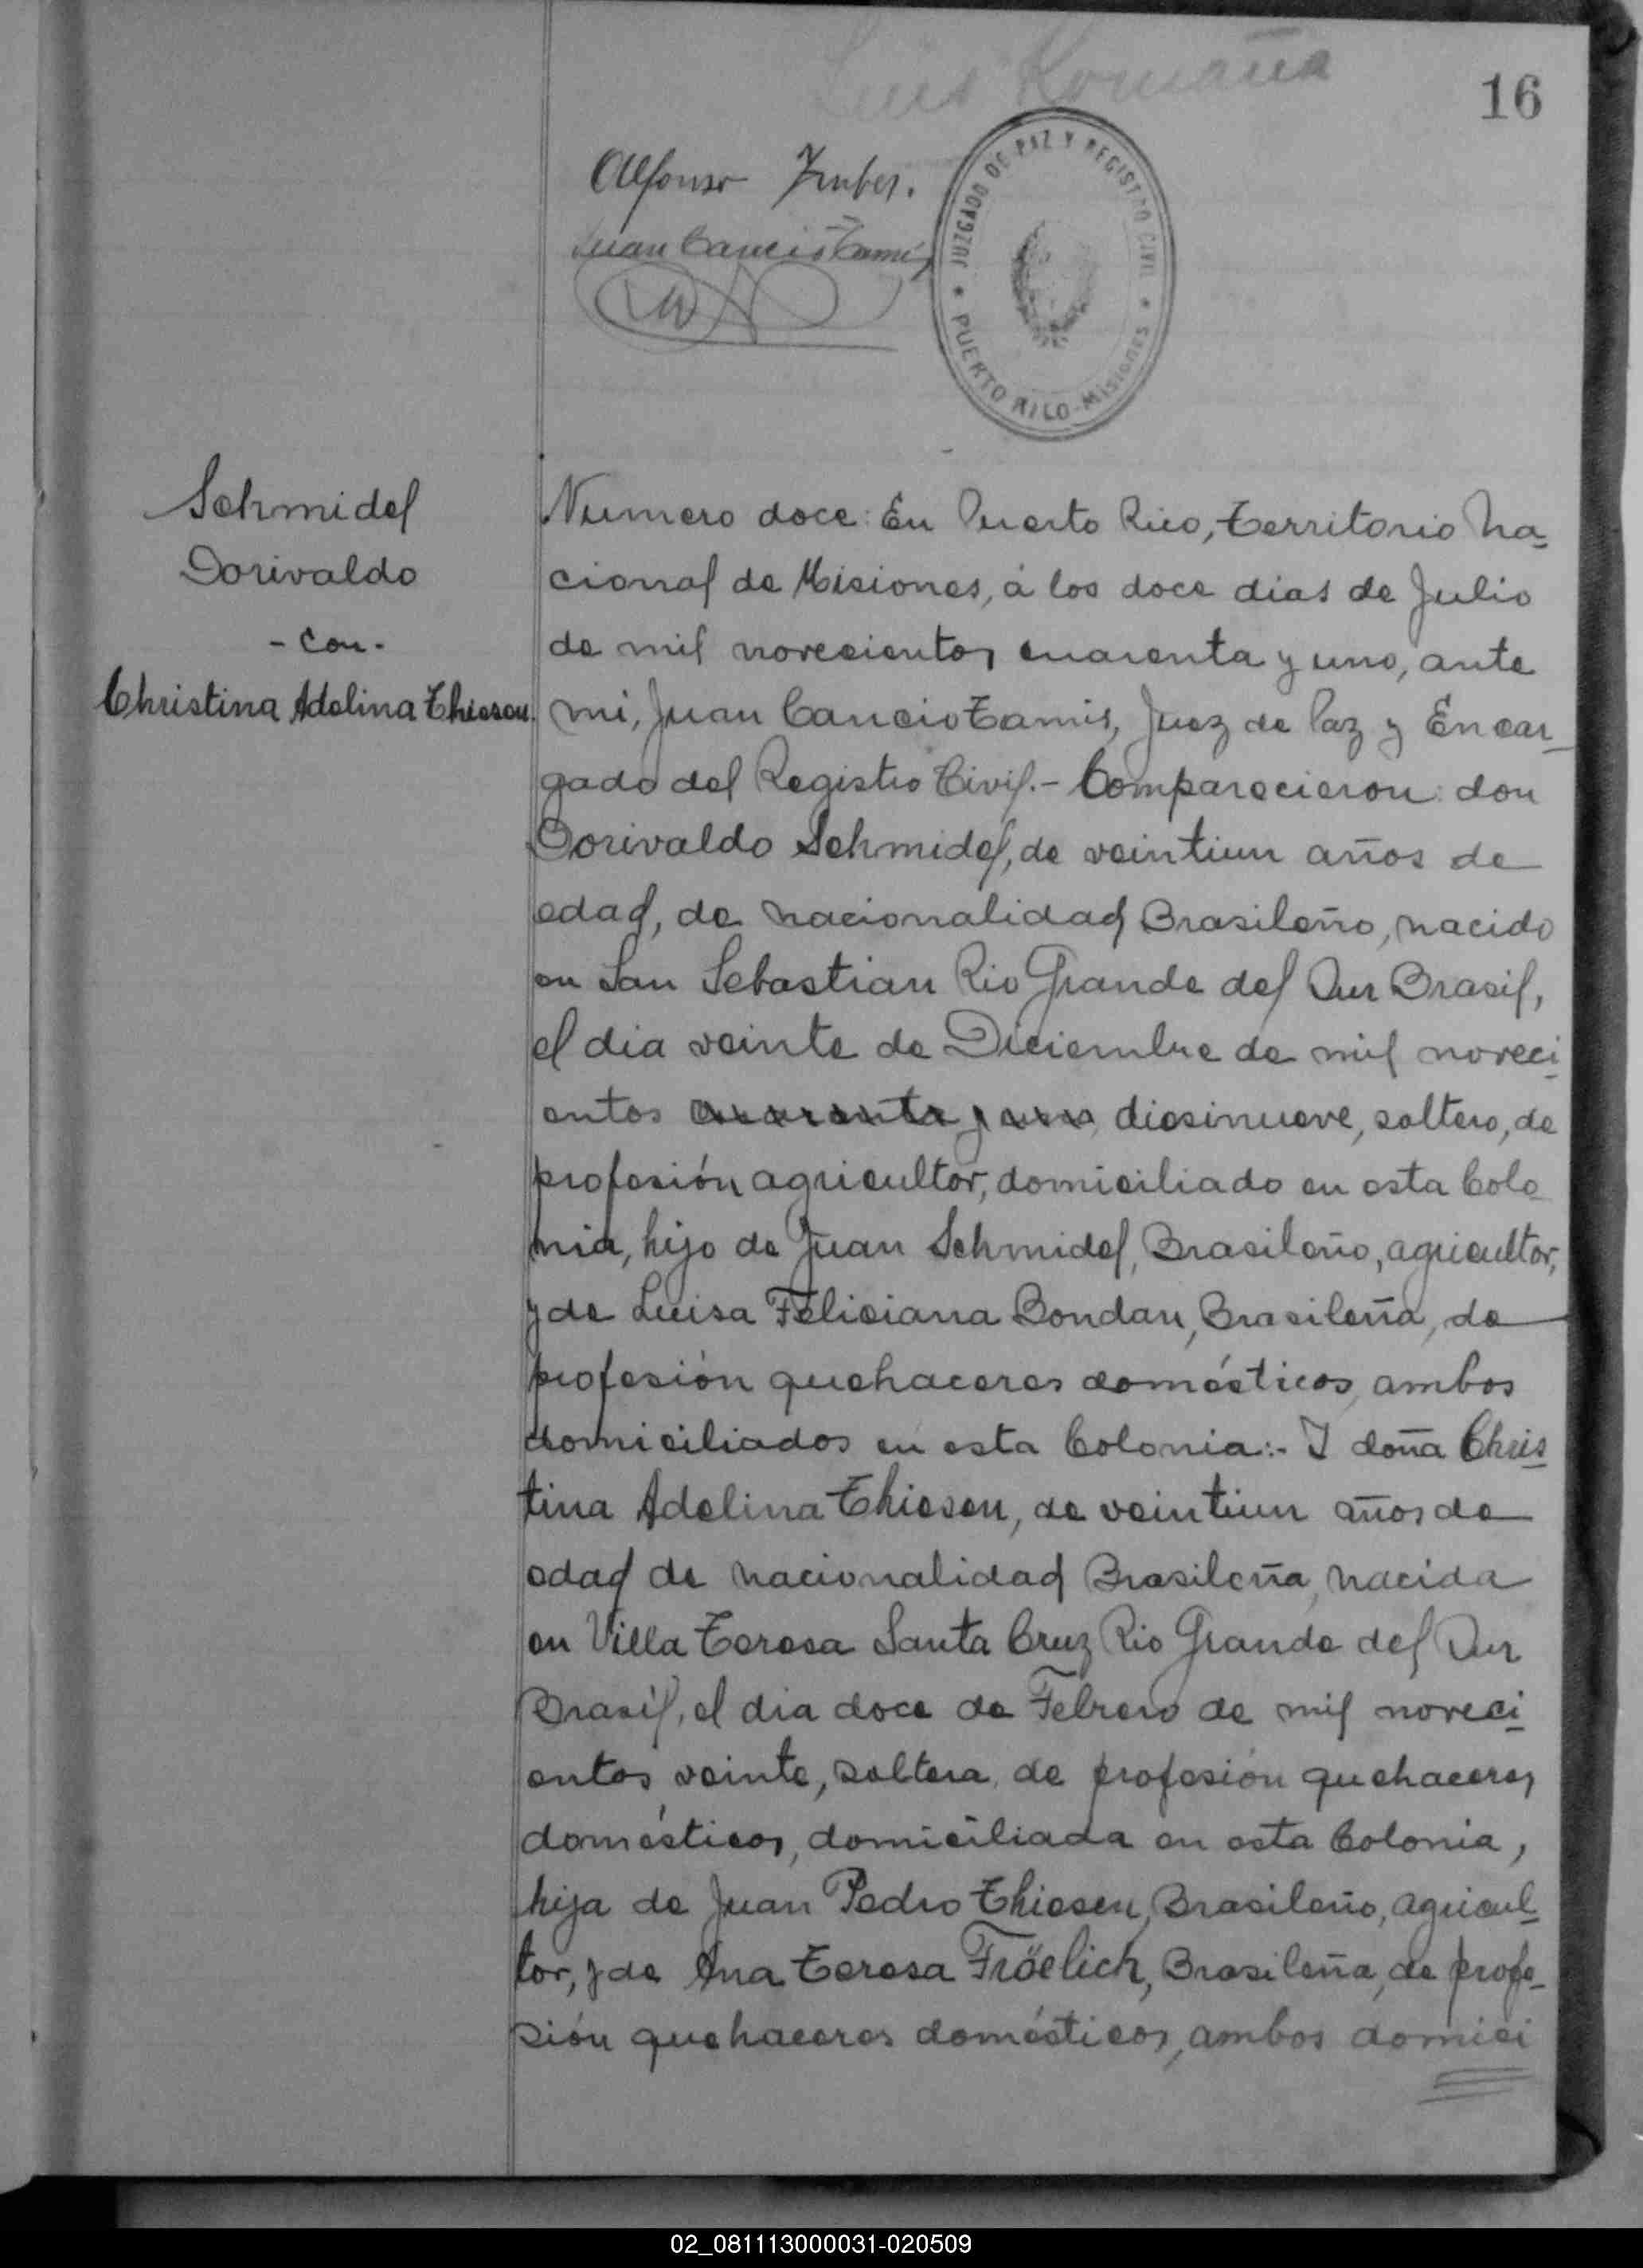 16
Luis Romaña
Alfonso
Juan Cancio Tamis
JUZGADO DE PAZ Y REGISTRO CIVIL
PUERTO RICO - Misiones
Schmidel
Dorivaldo
- con -
Christina Adelina Thiesen.
Numero doce: En Puerto Rico, Territorio Na-
cional de Misiones, á los doce dias de Julio
de mil novecientos cuarenta y uno, ante
mi, Juan Cancio Tamis, Juez de Paz y Encar-
gado del Registro Civil.- Comparecieron: don
Dorivaldo Schmidel, de veintiun años de
edad, de nacionalidad Brasileño, nacido
en San Sebastian Rio Grande del Sur Brasil,
el dia veinte de Diciembre de mil noveci-
entos cuarenta y uno, diesinueve, soltero, de
profesión agricultor, domiciliado en esta Colo-
nia, hijo de Juan Schmidel, Brasileño, agricultor,
y de Luisa Feliciana Bondan, Brasileña, de
profesión quehaceres domésticos, ambos
domiciliados en esta Colonia:- I doña Chris-
tina Adelina Thiesen, de veintiun años de
edad de nacionalidad Brasileña, nacida
en Villa Teresa Santa Cruz Rio Grande del Sur
Brasil, el dia doce de Febrero de mil noveci-
entos veinte, soltera, de profesión quehaceres
domésticos, domiciliada en esta Colonia,
hija de Juan Pedro Thiesen, Brasileño, agricul-
tor, y de Ana Teresa Fröelich, Brasileña, de profe-
sión quehaceres domésticos, ambos domici
02_081113000031-020509